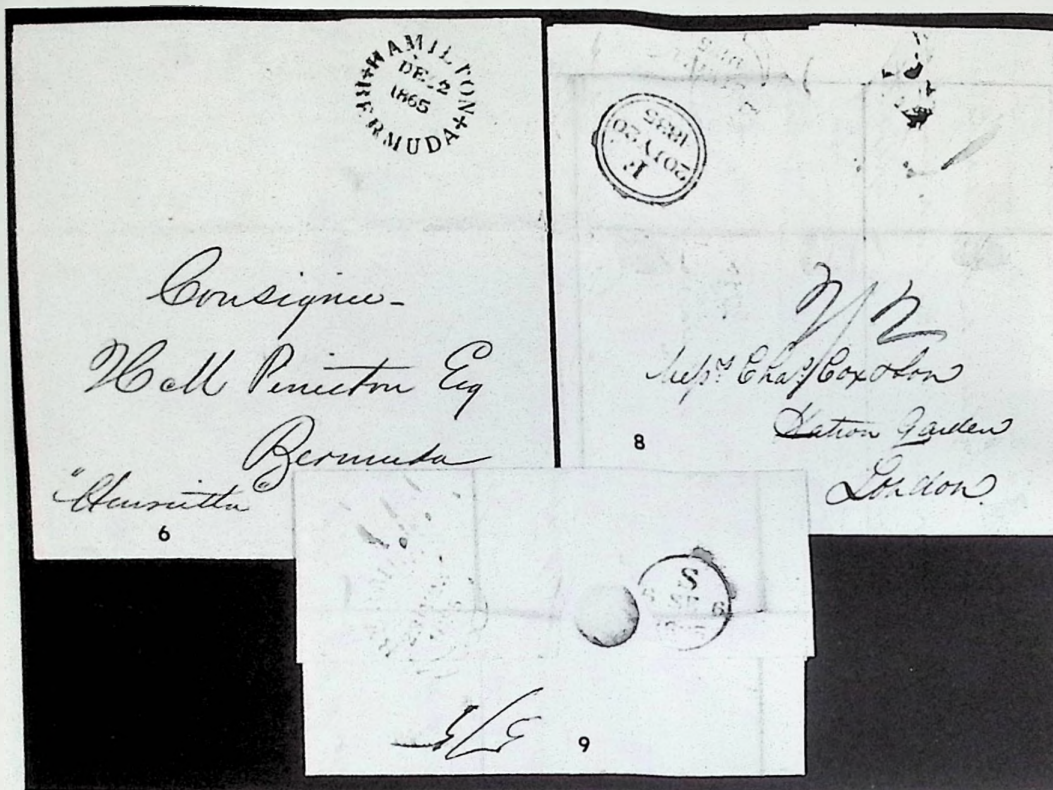 HAMILTON + BERMUDA +
DE 2
1865
Consignee-
Peniston Esq
Bermuda
"Henrietta
6
F
20 JY 20
1835
2/2
Mess.rs Cha.s Cox & Son
Hatton Garden
London
8
S
6 SE 6
9